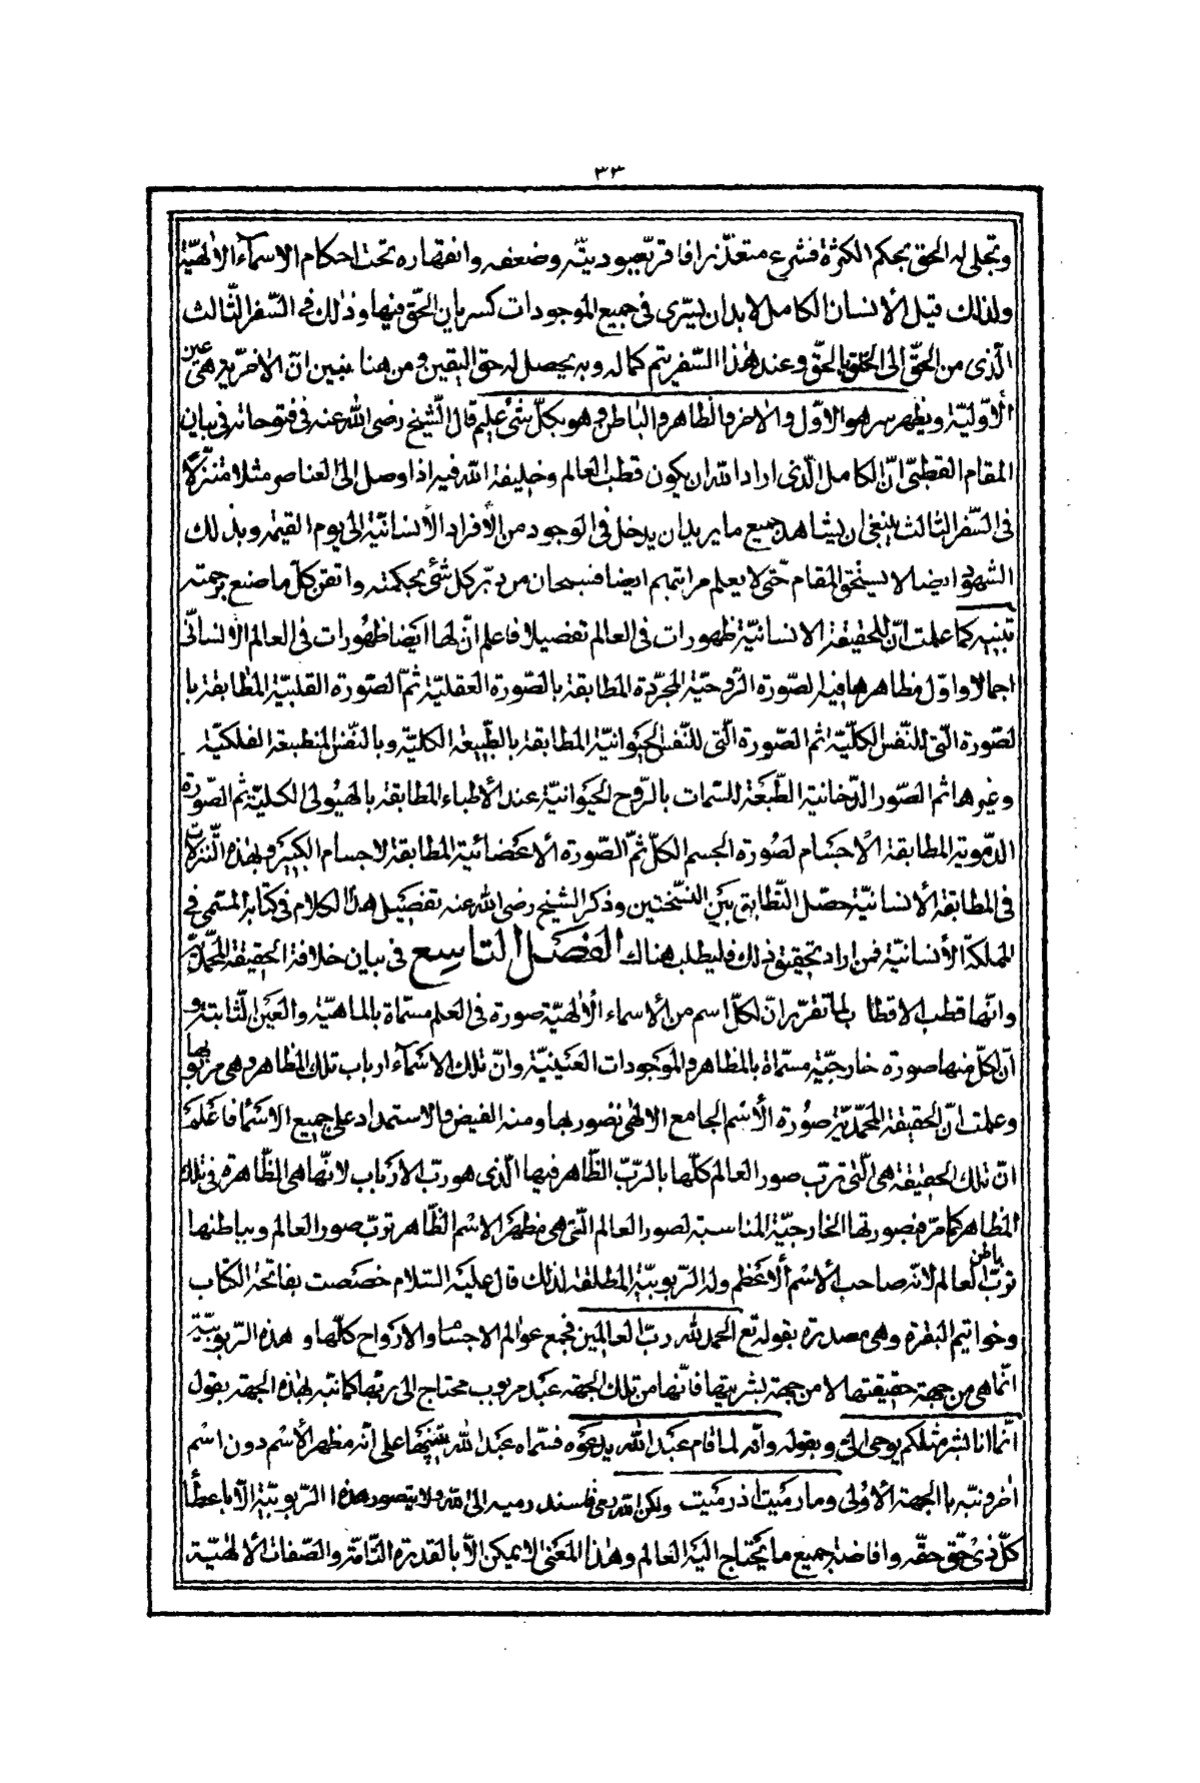 ٣٣
وتجلى له الحق بحكم الكثرة فشرع متعذرا فاقر بعبوديته وضعفه وانقهاره تحت احكام الاسمآء الالهيّة
ولذلك قيل الأنسان الكامل لابد ان يسرى فى جميع الموجودات كسريان الحقّ فيها وذلك فى السّفر الثّالث
الّذى من الحقّ الى الخلق بالحقّ وعند هذا السّفر يتم كماله وبه يحصل له حق اليقين ومن هنا يتبين انّ الاخريّة هى عين
الأوّليّة ويظهر سر هو الاوّل والاخر والظاهر والباطن وهو بكلّ شئ عليم قال الشّيخ رضى الله عنه فى فتوحاته فى بيان
المقام القطبىّ انّ الكامل الّذى اراد الله ان يكون قطب العالم وخليفة الله فيه اذا وصل الى العناصر مثلا متنزّلا
فى السّفر الثالث ينبغى ان يشاهد جميع ما يريد ان يدخل فى الوجود من الأفراد الأنسانيّة الى يوم القيمة وبذلك
الشهود ايضا لا يستحق المقام حتّى لا يعلم مراتبهم ايضا فسبحان من دبّر كل شئ بحكمته واتقن كلّ ما صنع برحمته
تنبيه كما علمت انّ للحقيقة الانسانيّة ظهورات فى العالم تفصيلا فاعلم انّ لها ايضا ظهورات فى العالم الانسانىّ
اجمالا واوّل مظاهرها فيه الصّورة الرّوحيّة المجرّدة المطابقة بالصّورة العقليّة ثمّ الصّورة القلبيّة المطابقة با
لصّورة الّتى للنّفس الكليّة ثم الصّورة الّتى للنّفس الحيوانيّة المطابقة بالطّبيعة الكليّة وبالنّفس المنطبعة الفلكيّة
وغيرها ثم الصّور الدّخانية الطّبعة للسمات بالرّوح الحيوانيّة عند الأطباء المطابقة بالهيولى الكليّة ثم الصّورة
الدّمويّة المطابقة الأجسام لصورة الجسم الكلّ ثمّ الصّورة الأعضائية المطابقة لاجسام الكبير وبهذه التّنزلات
فى المطابقة الأنسانيّة حصل التّطابق بين النسختين وذكر الشيخ رضى الله عنه تفصيل هذا الكلام فى كتابه المسمى فى
المملكة الأنسانيّة فمن اراد تحقيق ذلك فليطلب هناك الفصل التاسع فى بيان خلافة الحقيقة المحمّديّة
وانّها قطب الاقطاب لما تقرّر انّ لكلّ اسم من الأسماء الألهيّة صورة فى العلم مسمّاة بالماهيّة والعين الثّابتة و
انّ لكلّ منها صورة خارجيّة مسمّاة بالمظاهر والموجودات العينيّة وانّ تلك الاسمآء ارباب تلك المظاهر وهى مربوبها
وعلمت انّ الحقيقة المحمّديّة صورة الأسم الجامع الالهى تصور بها ومنه الفيض والاستمداد على جميع الاسماء فاعلم
انّ تلك الحقيقة هى الّتى تربّ صور العالم كلّها بالرّبّ الظّاهر فيها الّذى هو ربّ الارباب لانّها هى الظّاهرة فى تلك
المظاهر كما مرّ فبصورتها الخارجيّة المناسبة لصور العالم الّتى هى مظهر الاسم الظّاهر تربّ صور العالم وبباطنها
تربّ باطن العالم لانّه صاحب الأسم ألاعظم وله الرّبوبيّة المطلقة لذلك قال عليه السّلام خصصت بفاتحة الكتاب
وخواتيم البقرة وهى مصدرة بقوله تع الحمد لله ربّ العالمين فجمع عوالم الاجسام والارواح كلّها و هذه الرّبوبيّة
انّما هى من جهة حقيقتها لا من جهة بشريتها فانّها من تلك الجهة عبد مربوب محتاج الى ربّها كما نبّه بهذه الجهة بقول
انّما انا بشر مثلكم يوحى الىّ وبقوله وانّه لما قام عبد الله يدعوه فسمّاه عبد الله تنبيها على انّه مظهر لأسم دون اسم
اخر ونبّه بالجهة الأولى وما رميت اذ رميت ولكنّ الله رمى فاسند رميه الى الله ولا يتصور هذه الرّبوبيّة الّا باعطآ
كلّ ذى حقّ حقّه وافاضة جميع ما يحتاج اليه العالم وهذا المعنى لا يمكن الّا بالقدرة التّامّة والصّفات الألهيّة